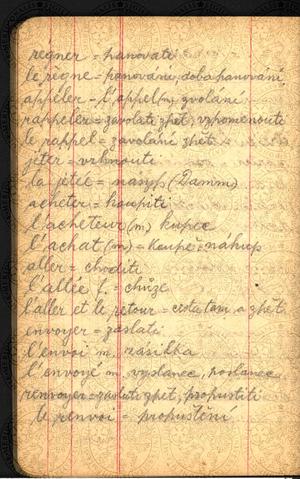 régner = panovati
le règne = panování, doba panování
appeler - l'appel (m) zvolání
rappeler = zavolati zpět, vzpomenouti
le rappel = zavolání zpět
jeter = vrhnouti
la jetée = násyp (Damm)
acheter = koupiti
l'acheteur (m) kupec
l'achat (m) = koupě = nákup
aller = choditi
l'allée f. = chůze
l'aller et le retour = cesta tam a zpět
envoyer = zaslati
l'envoi m. zásilka
l'envoyé m. vyslanec, poslanec
renvoyer = zaslati zpět, propustiti
le renvoi = propuštění